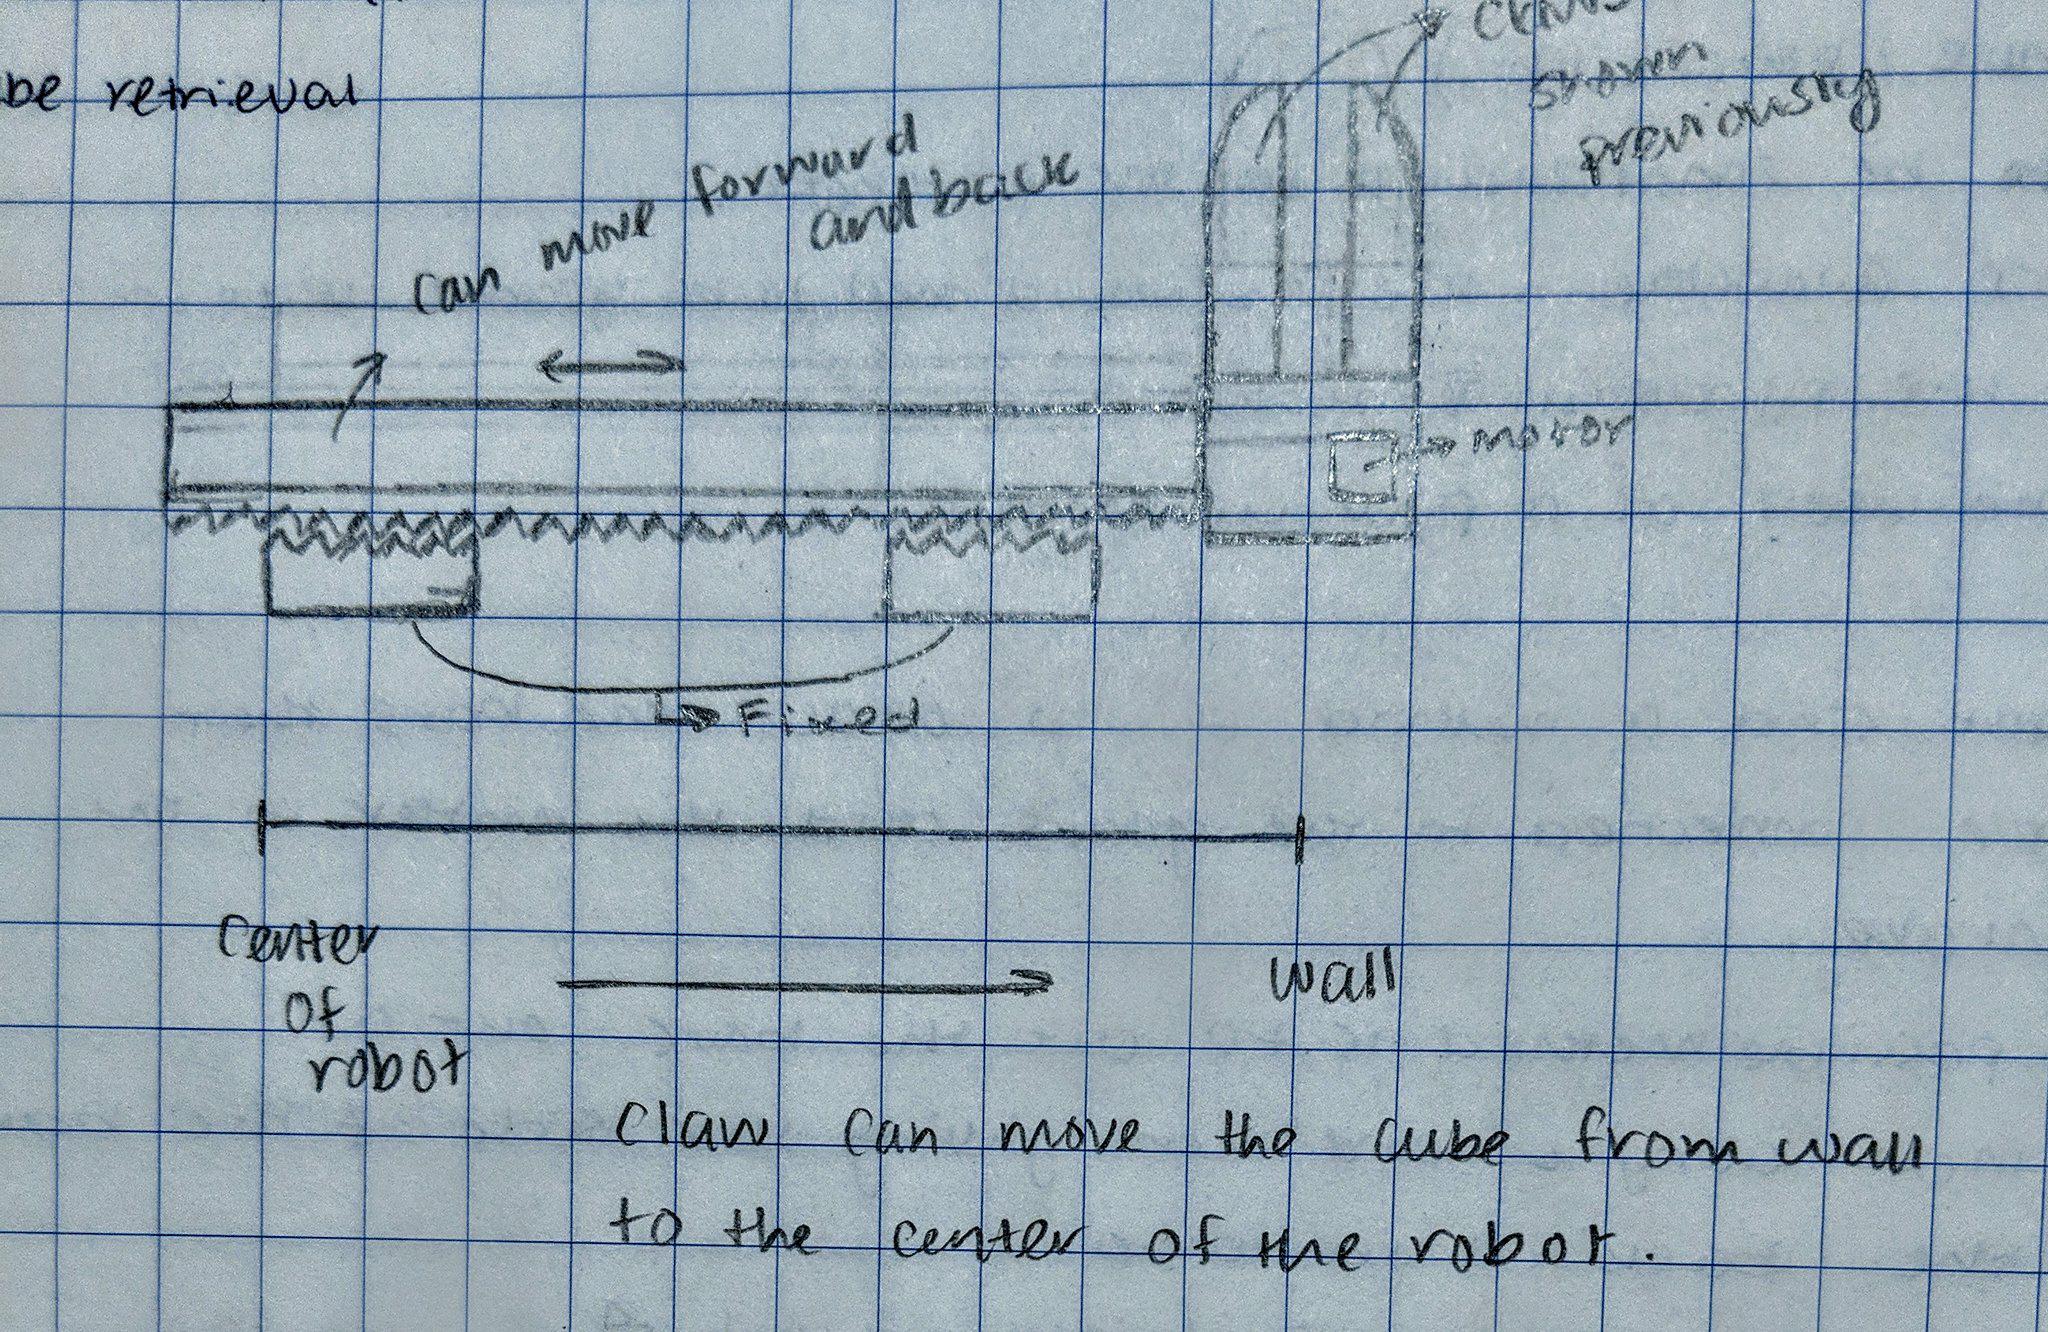 be retrieval
shown
previously
can move forward
and back
motor
Fixed
center
of
robot
wall
claw can move the cube from wall
to the center of the robot.